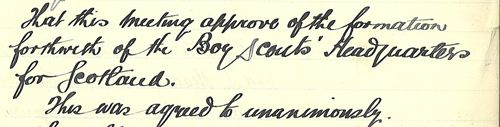 That this meeting approve of the formation
forthwith of the Boy Scouts' Headquarters
for Scotland.
This was agreed to unanimously.